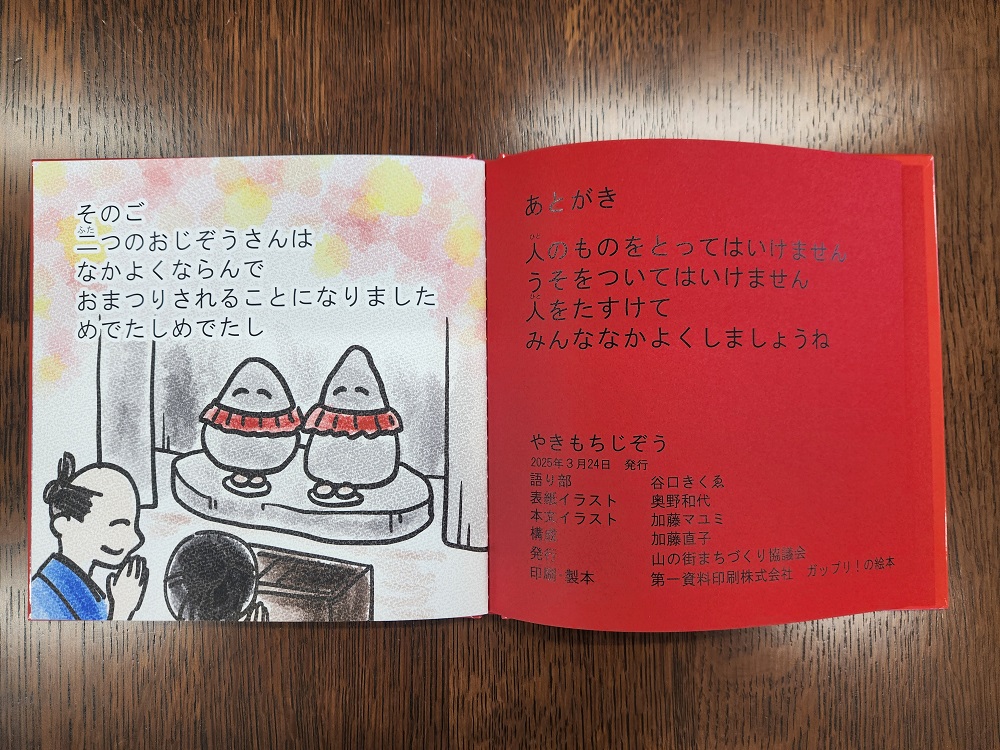 そのご
ふた
二つのおじぞうさんは
なかよくならんで
おまつりされることになりました
めでたしめでたし
あとがき
ひと
人のものをとってはいけません
うそをついてはいけません
ひと
人をたすけて
みんななかよくしましょうね
やきもちじぞう
2025年3月24日 発行
語り部 谷口きくゑ
表紙イラスト 奥野和代
本文イラスト 加藤マユミ
構成 加藤直子
発行 山の街まちづくり協議会
印刷・製本 第一資料印刷株式会社 ガップリ!の絵本